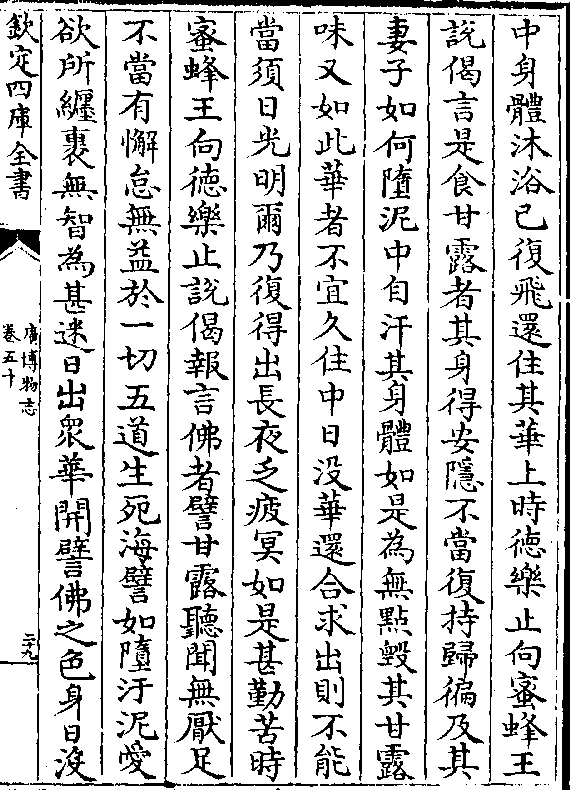 中身體沐浴已復飛還住其華上時德樂止向蜜蜂王
說偈言是食甘露者其身得安隱不當復持歸徧及其
妻子如何墮泥中自汙其身體如是為無點毀其甘露
味又如此華者不宜久住中日没華還合求出則不能
當須日光明爾乃復得出長夜乏疲冥如是甚勤苦時
蜜蜂王向德樂止說偈報言佛者譬甘露聽聞無厭足
不當有懈怠無益於一切五道生死海譬如墮汙泥愛
欲所纏裹無智為甚迷日出眾華開譬佛之色身日沒
欽定四庫全書
廣博物志
卷五十
二九